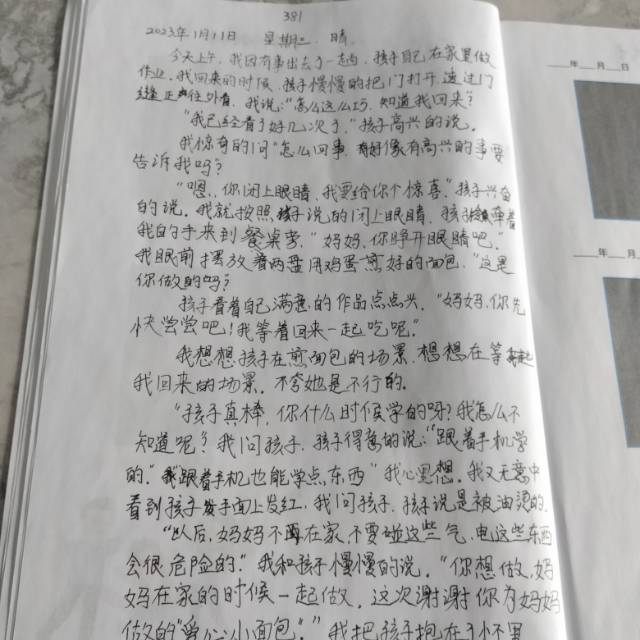 381
2023年1月11日 星期三 晴
今天上午，我因有事出去了一趟，孩子自己在家里做
作业，我回来的时候，孩子慢慢的把门打开透过门
缝正往外看，我说："怎么这么巧，知道我回来？
"我已经看了好几次了，"孩子高兴的说。
我惊奇的问"怎么回事，好像有高兴的事要
告诉我吗？
"嗯，你闭上眼睛，我要给你个惊喜"孩子兴奋
的说。我就按照孩子说的闭上眼睛，孩子牵着
我的手来到餐桌旁，"妈妈，你睁开眼睛吧，"
我眼前摆放着两盘用鸡蛋煎好的面包，"这是
你做的吗？
孩子看着自己满意的作品点点头，"妈妈，你先
快尝尝吧！我等着回来一起吃呢。"
我想想孩子在煎面包的场景，想想在等
我回来的场景，不夸她是不行的。
"孩子真棒，你什么时候学的呀？我怎么不
知道呢？我问孩子，孩子得意的说："跟着手机学
的。"跟着手机也能学点东西"我心里想，我又无意中
看到孩子手面上发红，我问孩子，孩子说是被油烫的，
"以后，妈妈不在家，不要碰这些气、电这些东西
会很危险的。"我和孩子慢慢的说，"你想做，妈
妈在家的时候一起做，这次谢谢你为妈妈
做的"爱心小面包"，"我把孩子抱在了怀里
__年__月__日
__年__月__日